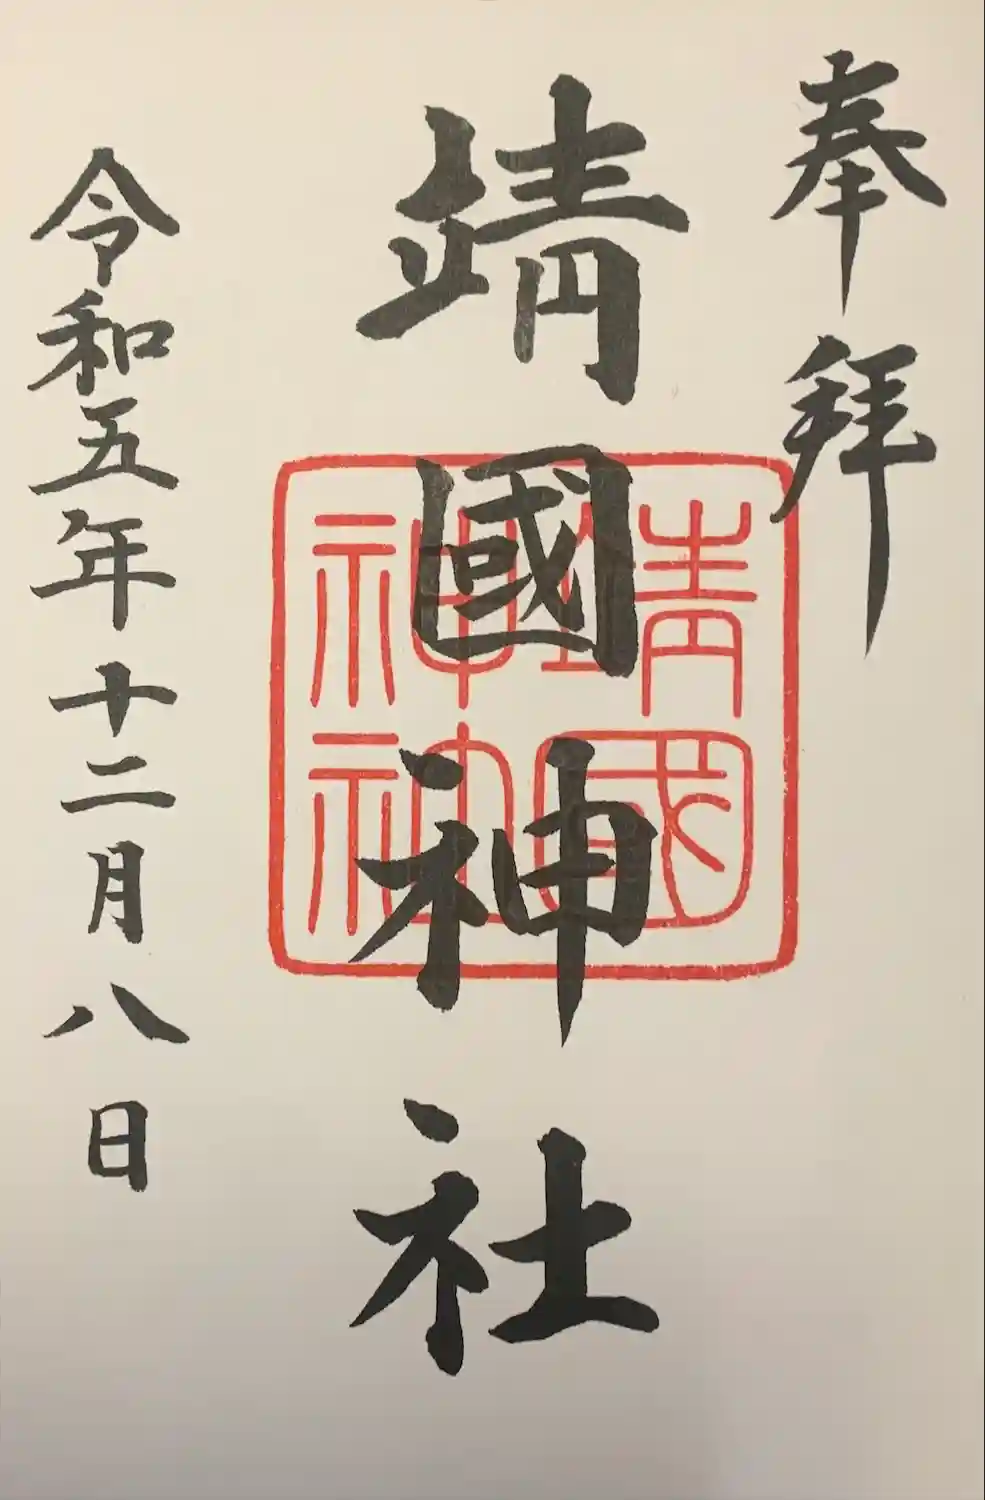 奉拜
靖國神社
靖國
神社
令和五年十二月八日